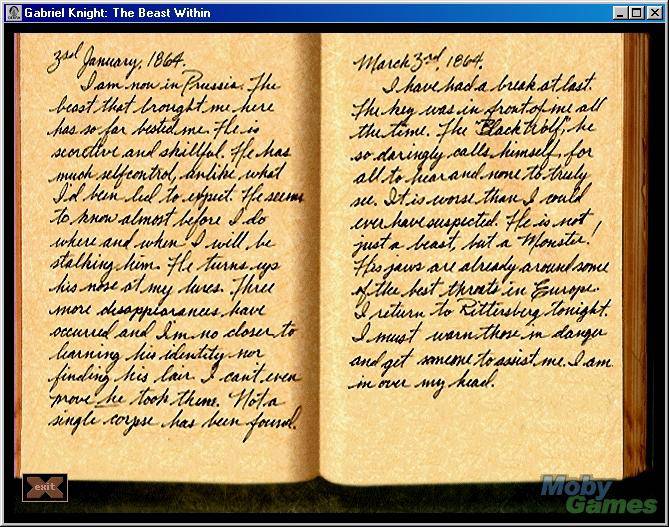 Gabriel Knight: The Beast Within
3rd January, 1864.
I am now in Prussia. The
beast that brought me here
has so far bested me. He is
secretive and skillful. He has
much self control, unlike what
I'd been led to expect. He seems
to know almost before I do
where and when I will be
stalking him. He turns up
his nose at my lures. Three
more disappearances have
occurred and I'm no closer to
learning his identity nor
finding his lair. I can't even
prove he took them. Not a
single corpse has been found.
March 3rd, 1864.
I have had a break at last.
The key was in front of me all
the time. The "Black Wolf", he
so daringly calls himself, for
all to hear and none to truly
see. It is worse than I could
ever have suspected. He is not
just a beast, but a Monster!
His jaws are already around some
of the best throats in Europe.
I return to Rittersberg tonight.
I must warn those in danger
and get someone to assist me. I am
in over my head.
exit
Moby
Games